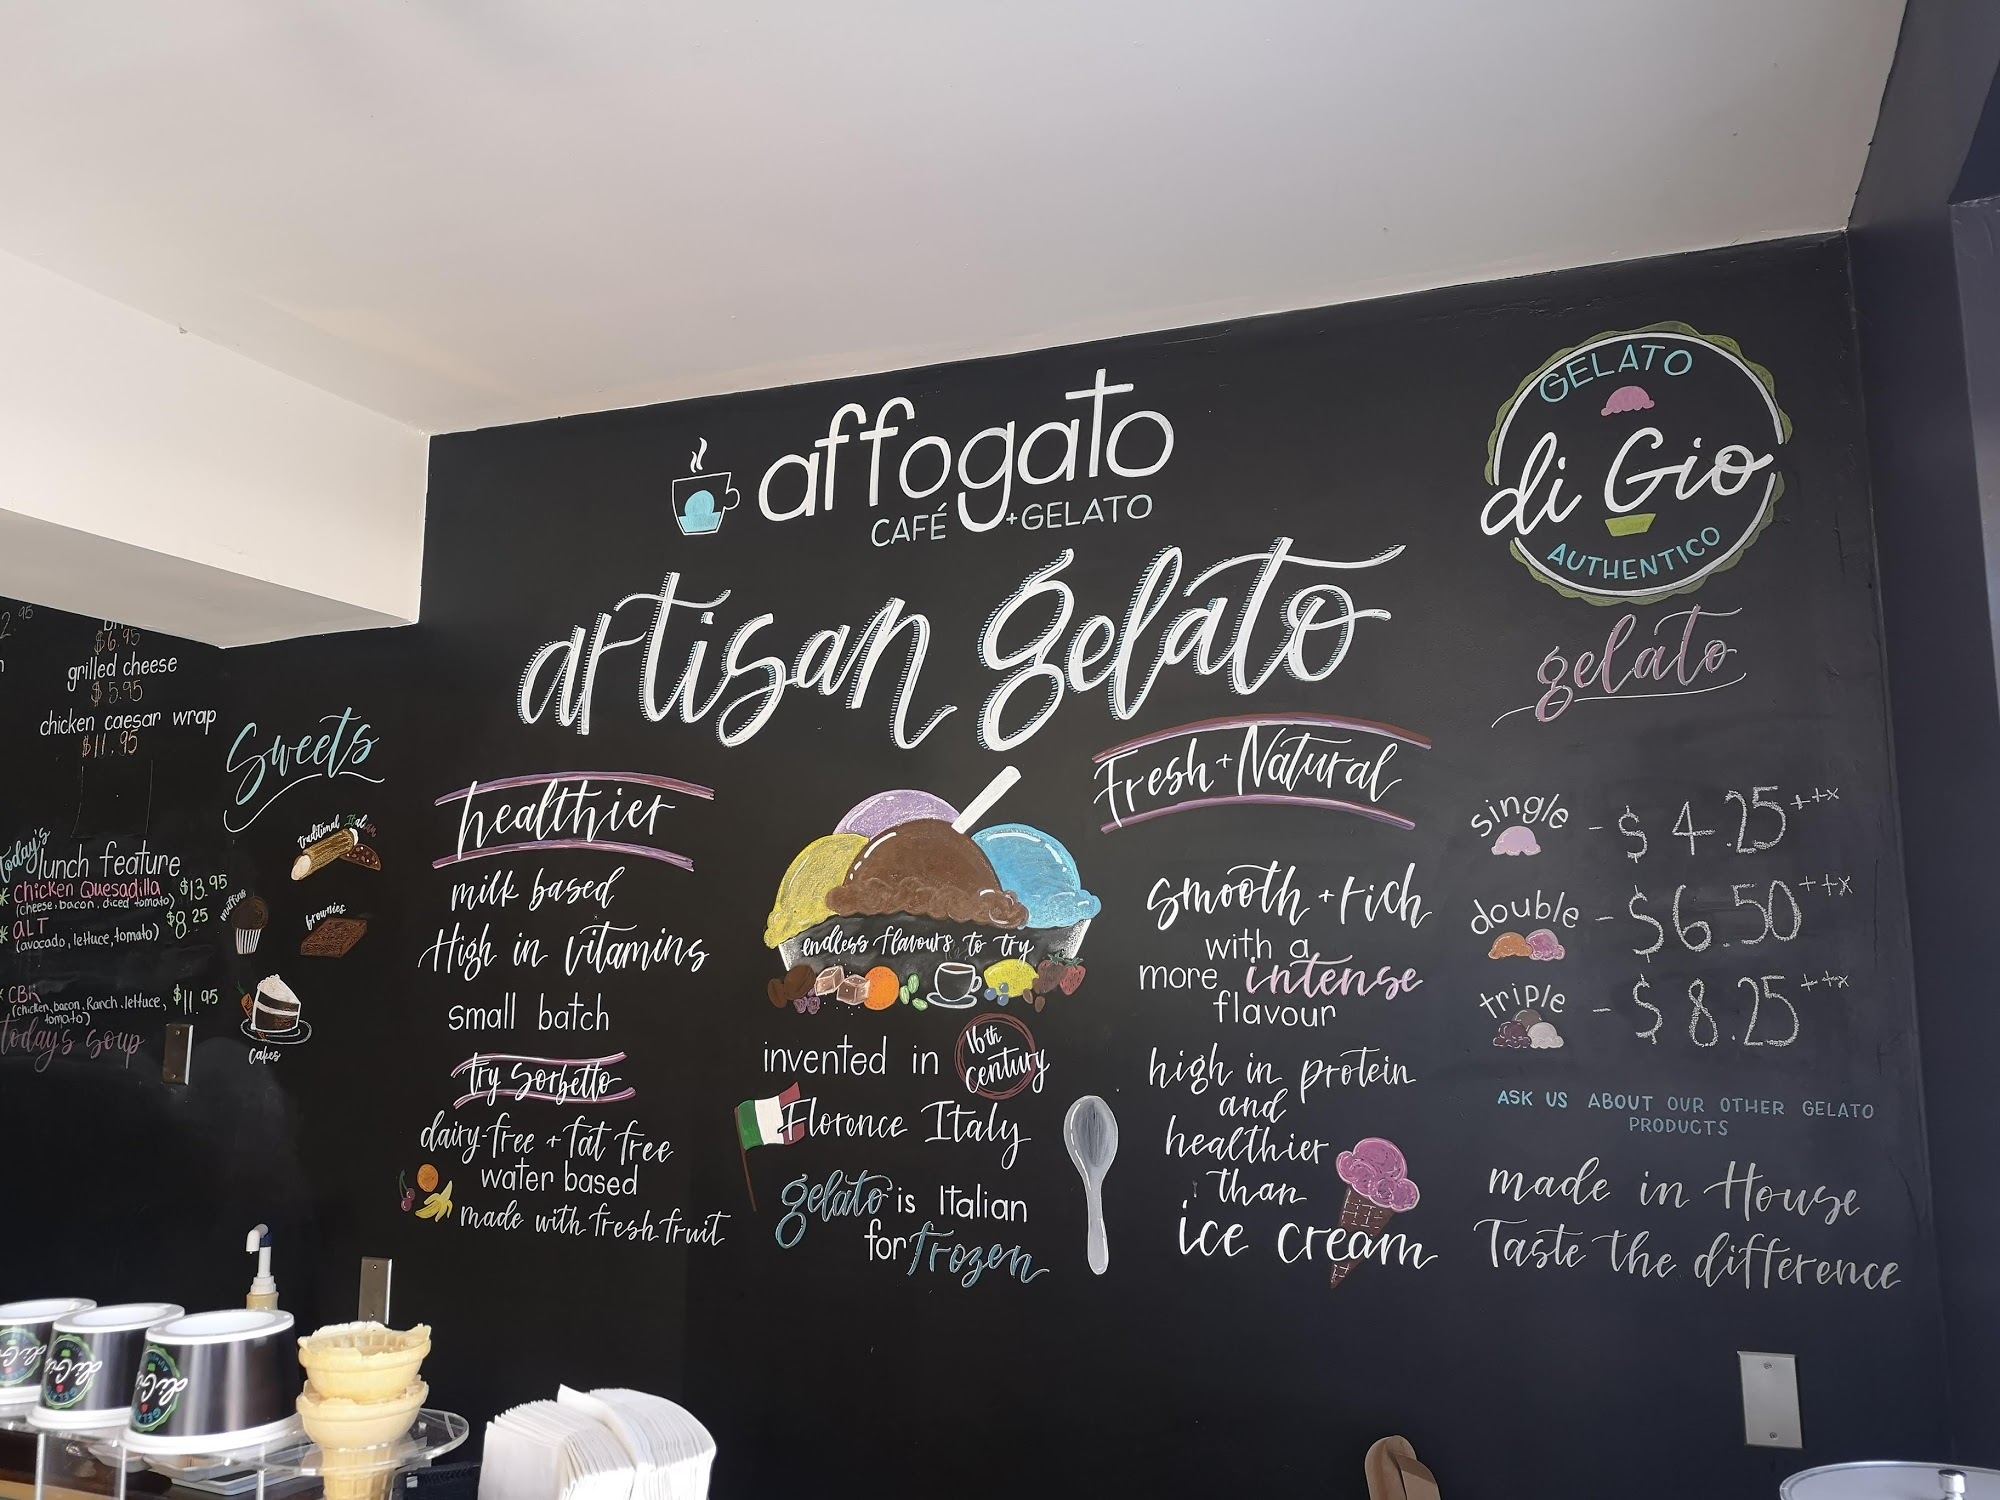 2.95
$6.95
grilled cheese
$5.95
chicken caesar wrap
$11.95
today's
lunch feature
* Chicken Quesadilla $13.95
(cheese, bacon, diced tomato)
* ALT $8.25
(avocado, lettuce, tomato)
* CBR $11.95
(chicken, bacon, Ranch, lettuce,
tomato)
today's soup
Sweets
traditional Italian
muffins
brownies
cakes
affogato
CAFÉ + GELATO
artisan gelato
healthier
milk based
High in vitamins
small batch
try Sorbetto
dairy-free + fat free
water based
made with fresh fruit
endless flavours to try
invented in 16th
century
Florence Italy
gelato is Italian
for frozen
Fresh + Natural
smooth + rich
with a
more intense
flavour
high in protein
and
healthier
than
ice cream
GELATO
di Gio
AUTHENTICO
gelato
single - $4.25++x
double - $6.50++x
triple - $8.25++x
ASK US ABOUT OUR OTHER GELATO
PRODUCTS
made in House
Taste the difference
di Gio
di Gio
GELATO
di Gio